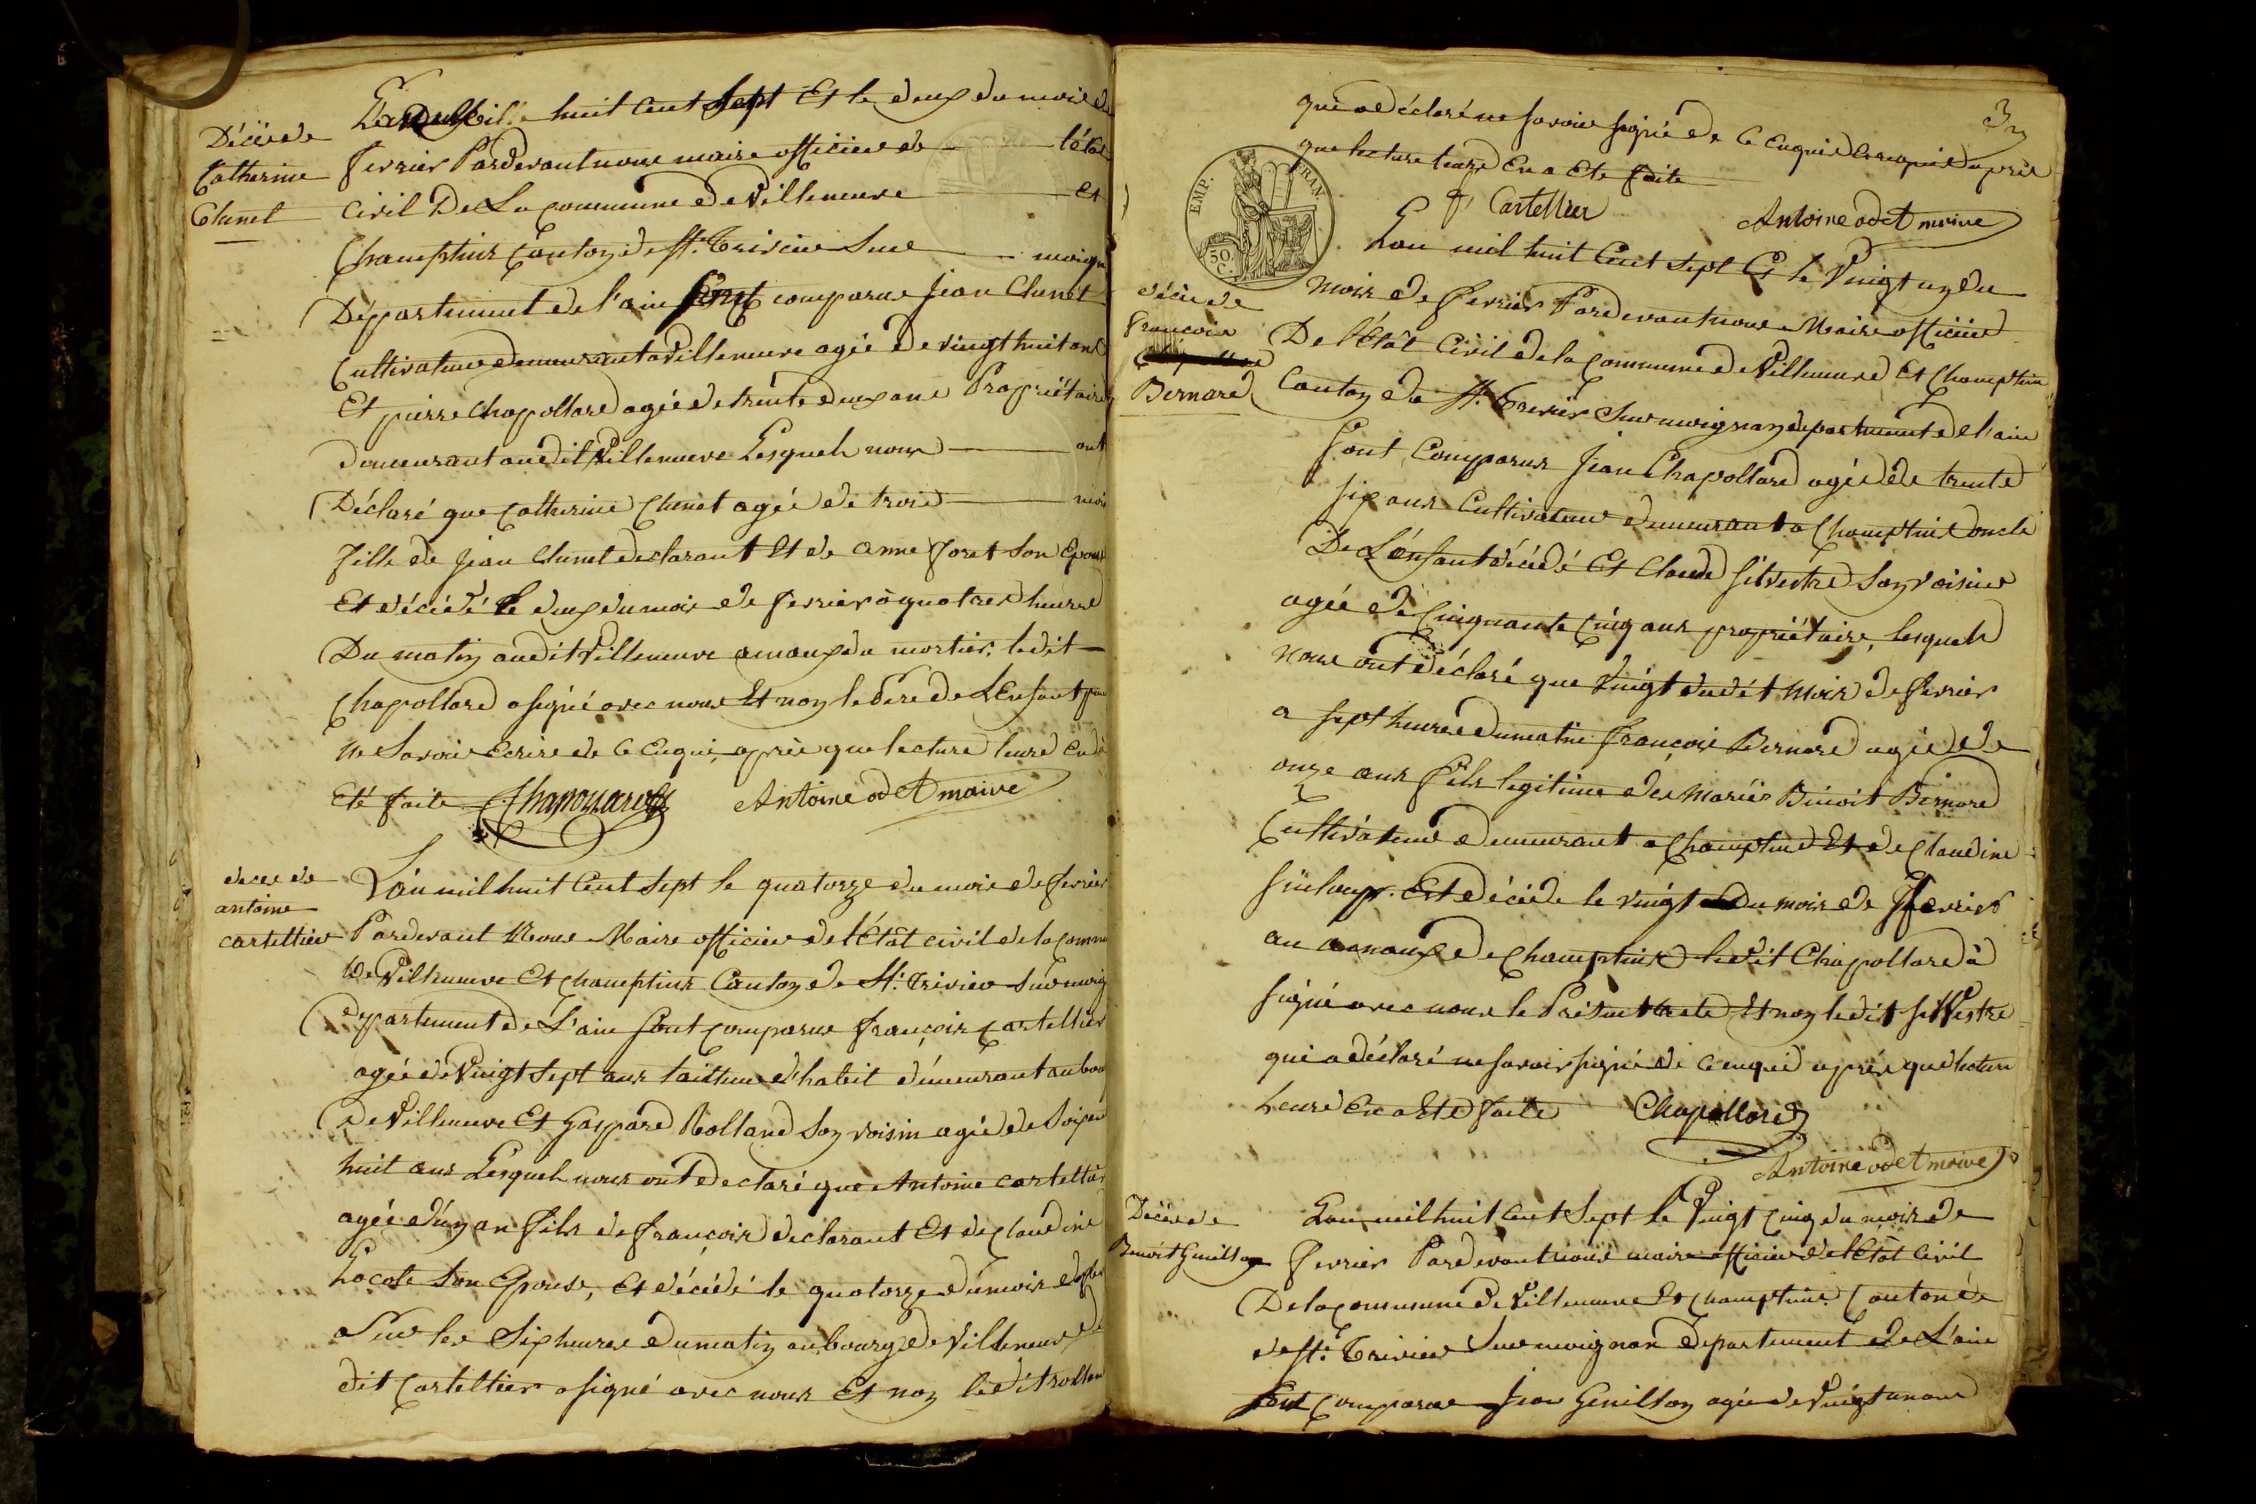 Décès de
Catherine
Chanel
L'an Mil huit cent sept Et le deux du mois de
fevrier Pardevant nous maire officier de l'état
Civil De La Commune de Villeneuve Et
Champtins Canton de St. Trivier Sur moign
Département de l'ain sont comparus Jean Chanel
Cultivateur demeurant a Villeneuve agée de vingt huit ans
Et pierre Chapollard agée de trente deux ans Propriétaire
demeurant audit Villeneuve Lesquels nous ont
Déclaré que Catherine Chanel agée de trois mois
fille de Jean Chanel declarant Et de anne foret son Epouse
Et décédé le deux du mois de fevrier à quatres heures
Du matin audit Villeneuve amaux du mortier, ledit
Chapollard a signé avec nous Et non le Pere de L'Enfant pour
ne Savoir Ecrire de ce Enquis, après que lecture leurs en a
Eté faite Chapollard Antoine odet maire
deces de
antoine
cartellier
L'an mil huit Cent Sept le quatorze du mois de fevrier
Pardevant Nous Maire officier de l'Etat civil de la commu
De Villeneuve Et Champtins Canton de St. Trivier Sur moig
departement de L'ain sont comparus françois Cartellier
agée de Vingt Sept ans tailleur d'habit demeurant au bour
De Villeneuve Et Gaspard Rolland Son voisin agée de Soixan
huit ans Lesquels nous ont declaré que Antoine cartellier
agée d'un an fils de françois declarant Et de Claudine
Lacote Son Epouse, Et décédé le quatorze du mois de
a Sur les Six heures du matin au bourg de Villeneuve
dit Cartellier a signé avec nous Et non ledit rollan
3
qui a déclaré ne savoir signée de ce enquis après
que lecture leurs En a Eté faite
f Cartellier Antoine odet maire
EMP. FRAN.
50 C.
décès de
francois
Bernard
L'an mil huit Cent Sept Et le Vingt un du
mois de fevrier Pardevant nous Maire officier
De l'Etat Civil de la Commune de Villeneuve Et Champtins
Canton de St. Trivier Sur moignan departement de l'ain
Sont Comparus Jean Chapollard agée de trente
six ans Cultivateur demeurant a Champtins oncle
De L'énfant décédé Et Claude Silvestre Son voisin
agée de Cinquante Cinq ans propriétaire, lesquels
nous ont déclaré que Vingt dudit mois de fevrier
a sept heures du matin françois Bernard agée de
onze ans fils legitime des mariés Benoit Bernard
Cultivateur demeurant a Champtins Et de Claudine
Et décéde le vingt du mois de fevrier
au amaux de Champtins ledit Chapollard à
signé avec nous le Present acte Et non ledit silvestre
qui a déclaré ne savoir signé de ce enquis après que lecture
Leurs En a Eté faite Chapollard
Antoine odet maire
Décès de
Benoit Genillon
L'an mil huit Cent Sept le Vingt Cinq du mois de
fevrier Pardevant nous maire officier de l'Etat Civil
De la Commune de Villeneuve Et Champtins Canton
de St. Trivier Sur moignan departement de L'ain
Sont Comparus Jean Genillon agée de Vingt un ans